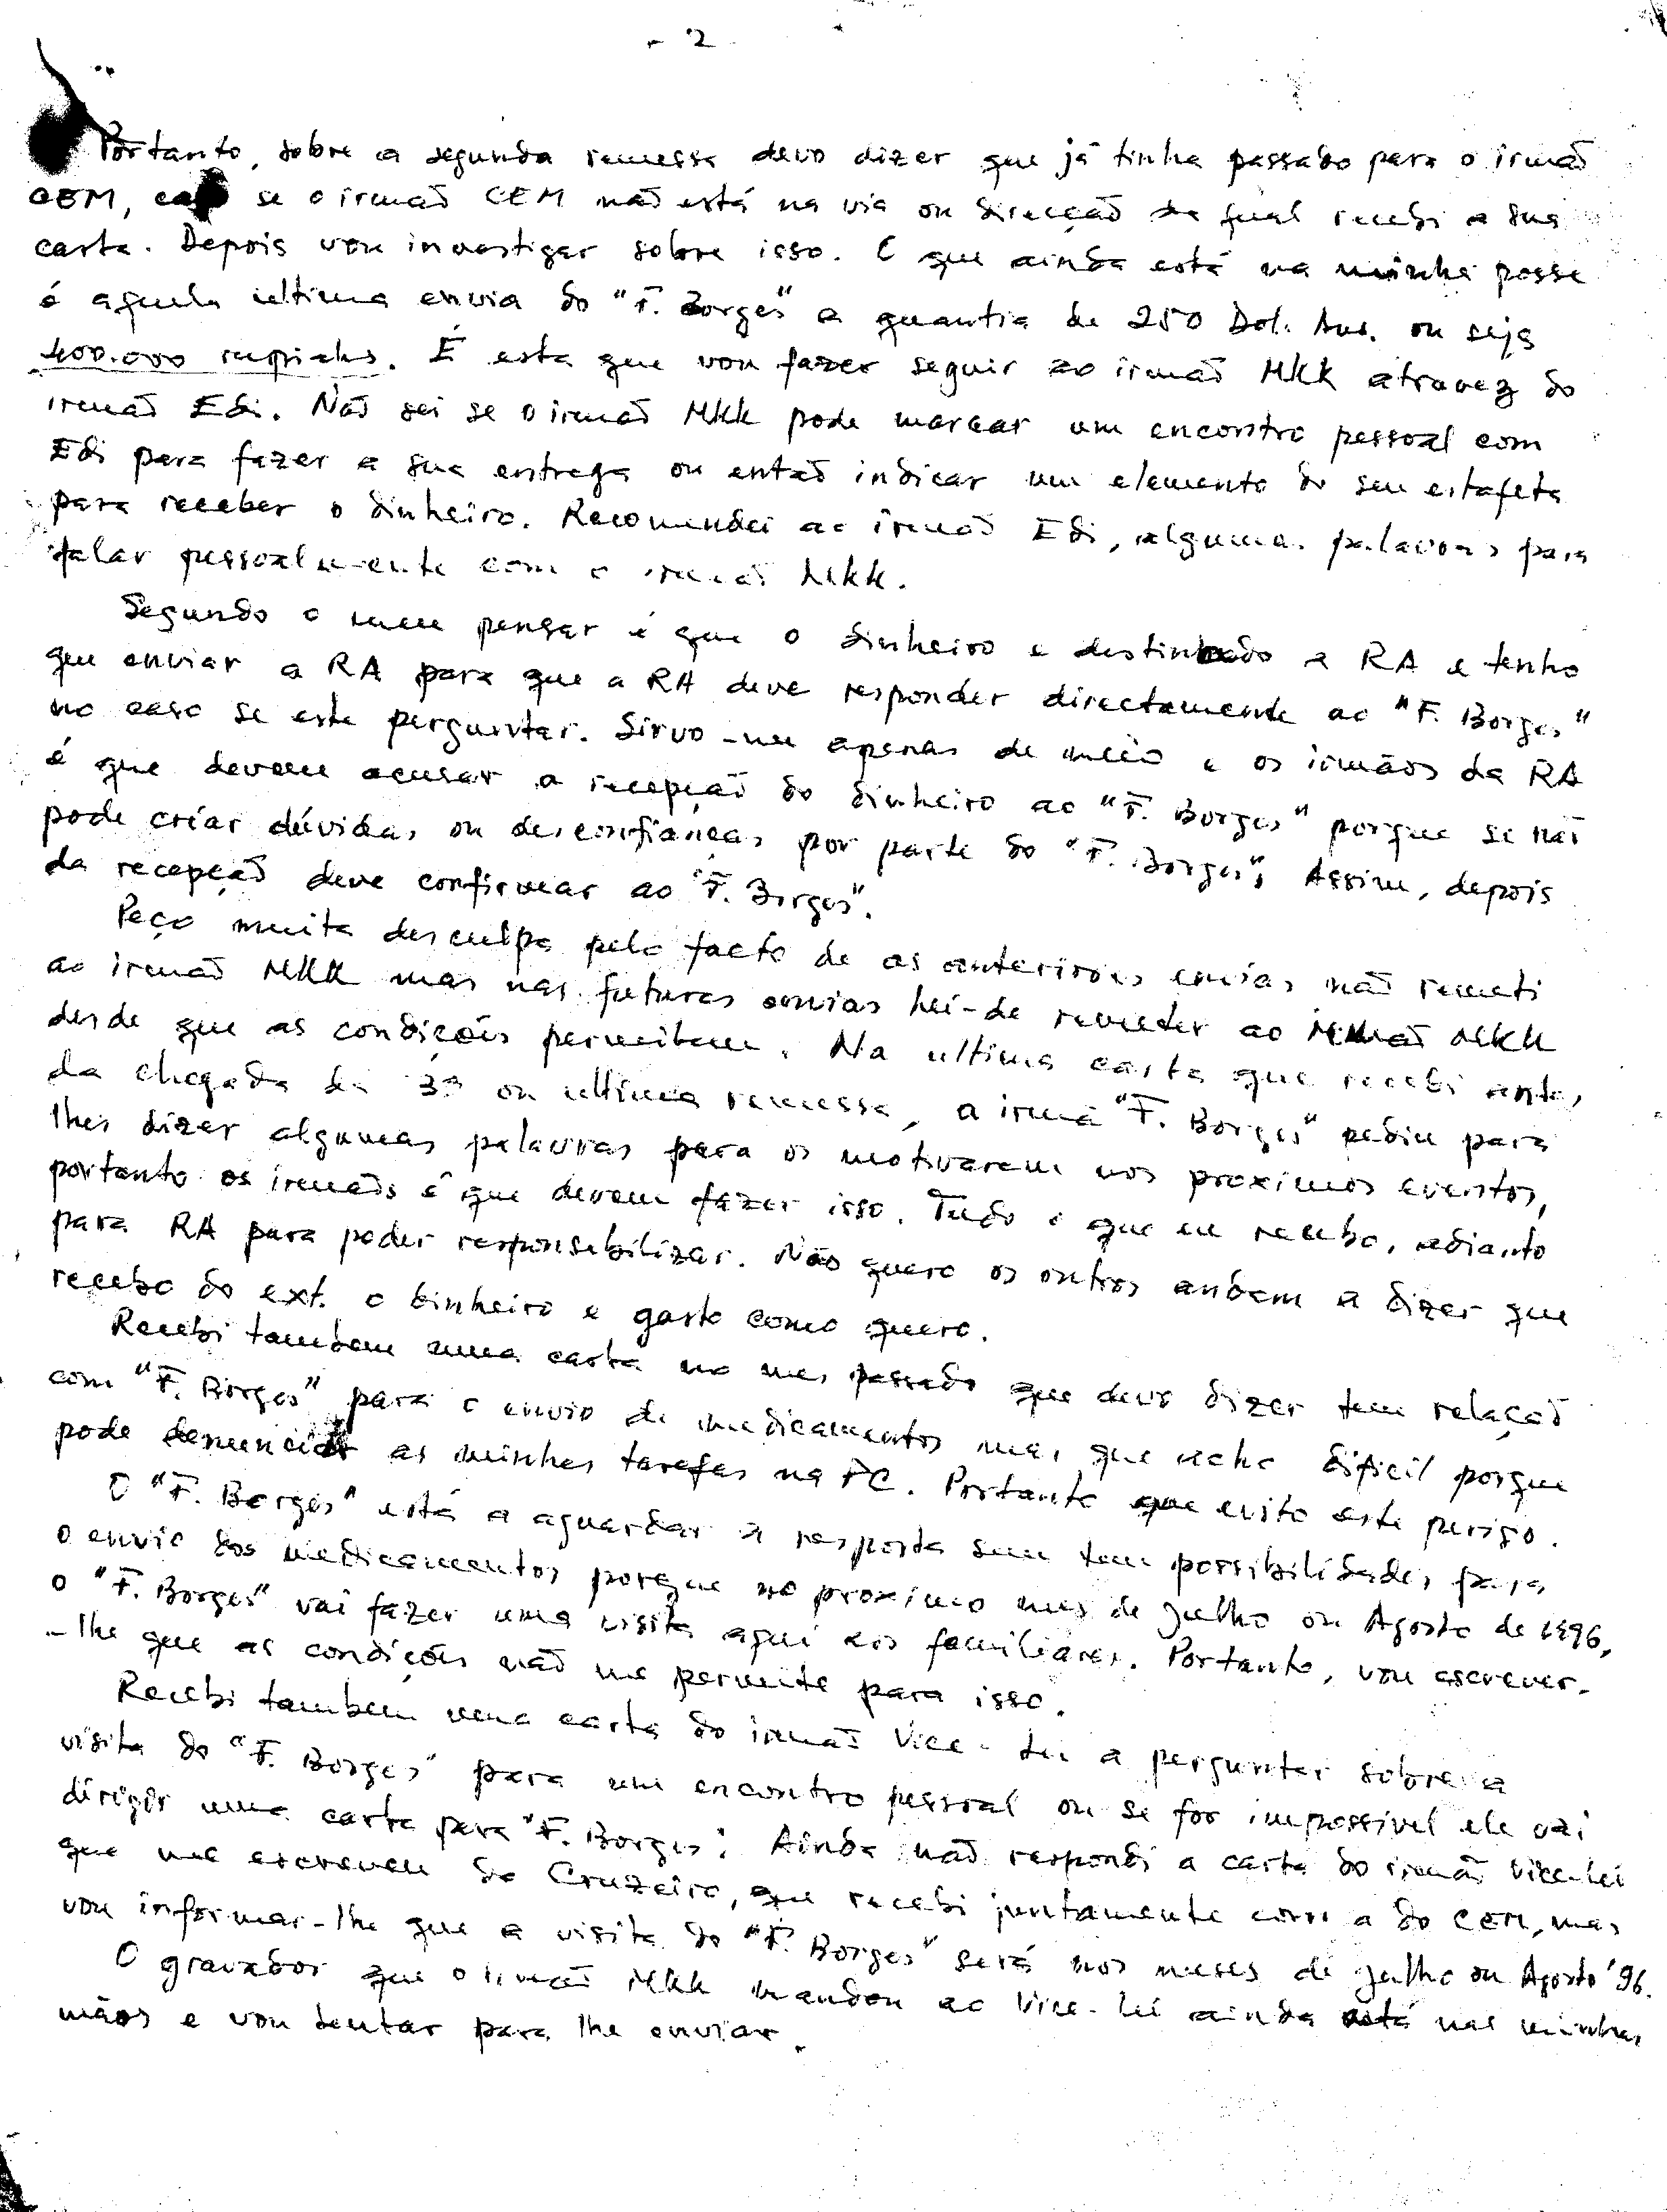 - 2
Portanto, sobre a segunda remessa devo dizer que já tinha passado para o irmaõ
CEM, se o irmaõ CEM naõ está na via ou direcçaõ da qual recebi a sua
carta. Depois vou investigar sobre isso. O que ainda está na minha posse
é aquela ultima envia do "F. Borges" a quantia de 250 Dol. Aus. ou seja
400.000 rupiahs. É esta que vou fazer seguir ao irmaõ MKK atravez do
irmaõ Edi. Naõ sei se o irmaõ MKK pode marcar um encontro pessoal com
Edi para fazer a sua entrega ou entaõ indicar um elemento do seu estafeta
para receber o dinheiro. Recomendei ao irmaõ Edi, algumas palavras para
falar pessoalmente com o irmaõ MKK.
Segundo o meu pensar é que o dinheiro e destinado a RA e tenho
que enviar a RA para que a RA deve responder directamente ao "F. Borges"
no caso se este perguntar. Sirvo-me apenas de meio e os irmãos da RA
é que devem acusar a recepçaõ do dinheiro ao "F. Borges" porque se naõ
pode criar dúvidas ou desconfianças por parte do "F. Borges". Assim, depois
da recepçaõ deve confirmar ao "F. Borges".
Peço muita desculpa pelo facto de as anteriores envias naõ remeti
ao irmaõ MKK mas nas futuras envias hei-de remeter ao irmaõ MKK
desde que as condições permitem. Na ultima carta que recebi antes
da chegada da 3ª ou ultima remessa, a irmã "F. Borges" pediu para
lhes dizer algumas palavras para os motivarem nos proximos eventos,
portanto os irmaõs é que devem fazer isso. Tudo o que eu recebo, adianto
para RA para poder responsabilizar. Não quero os outros andem a dizer que
recebo do ext. o dinheiro e gasto como quero.
Recebi tambem uma carta no mes passado que devo dizer tem relaçaõ
com "F. Borges" para o envio de medicamentos mas que acho dificil porque
pode denunciar as minhas tarefas na FC. Portanto que evito este perigo.
O "F. Borges" está a aguardar a resposta sem tem possibilidades para
o envio dos medicamentos porque no proximo mes de Julho ou Agosto de 1996,
o "F. Borges" vai fazer uma visita aqui aos familiares. Portanto, vou escrever-
-lhe que as condições naõ me permite para isso.
Recebi tambem uma carta do irmaõ Vice-Lei a perguntar sobre a
visita do "F. Borges" para um encontro pessoal ou se for impossivel ele vai
dirigir uma carta para "F. Borges". Ainda naõ respondi a carta do irmaõ Vice-Lei
que me escreveu de Cruzeiro, que recebi juntamente com a do CEM, mas
vou informar-lhe que a visita do "F. Borges" será nos meses de Julho ou Agosto '96.
O gravador que o irmaõ MKK mandou ao Vice-Lei ainda está nas minhas
mãos e vou tentar para lhe enviar.